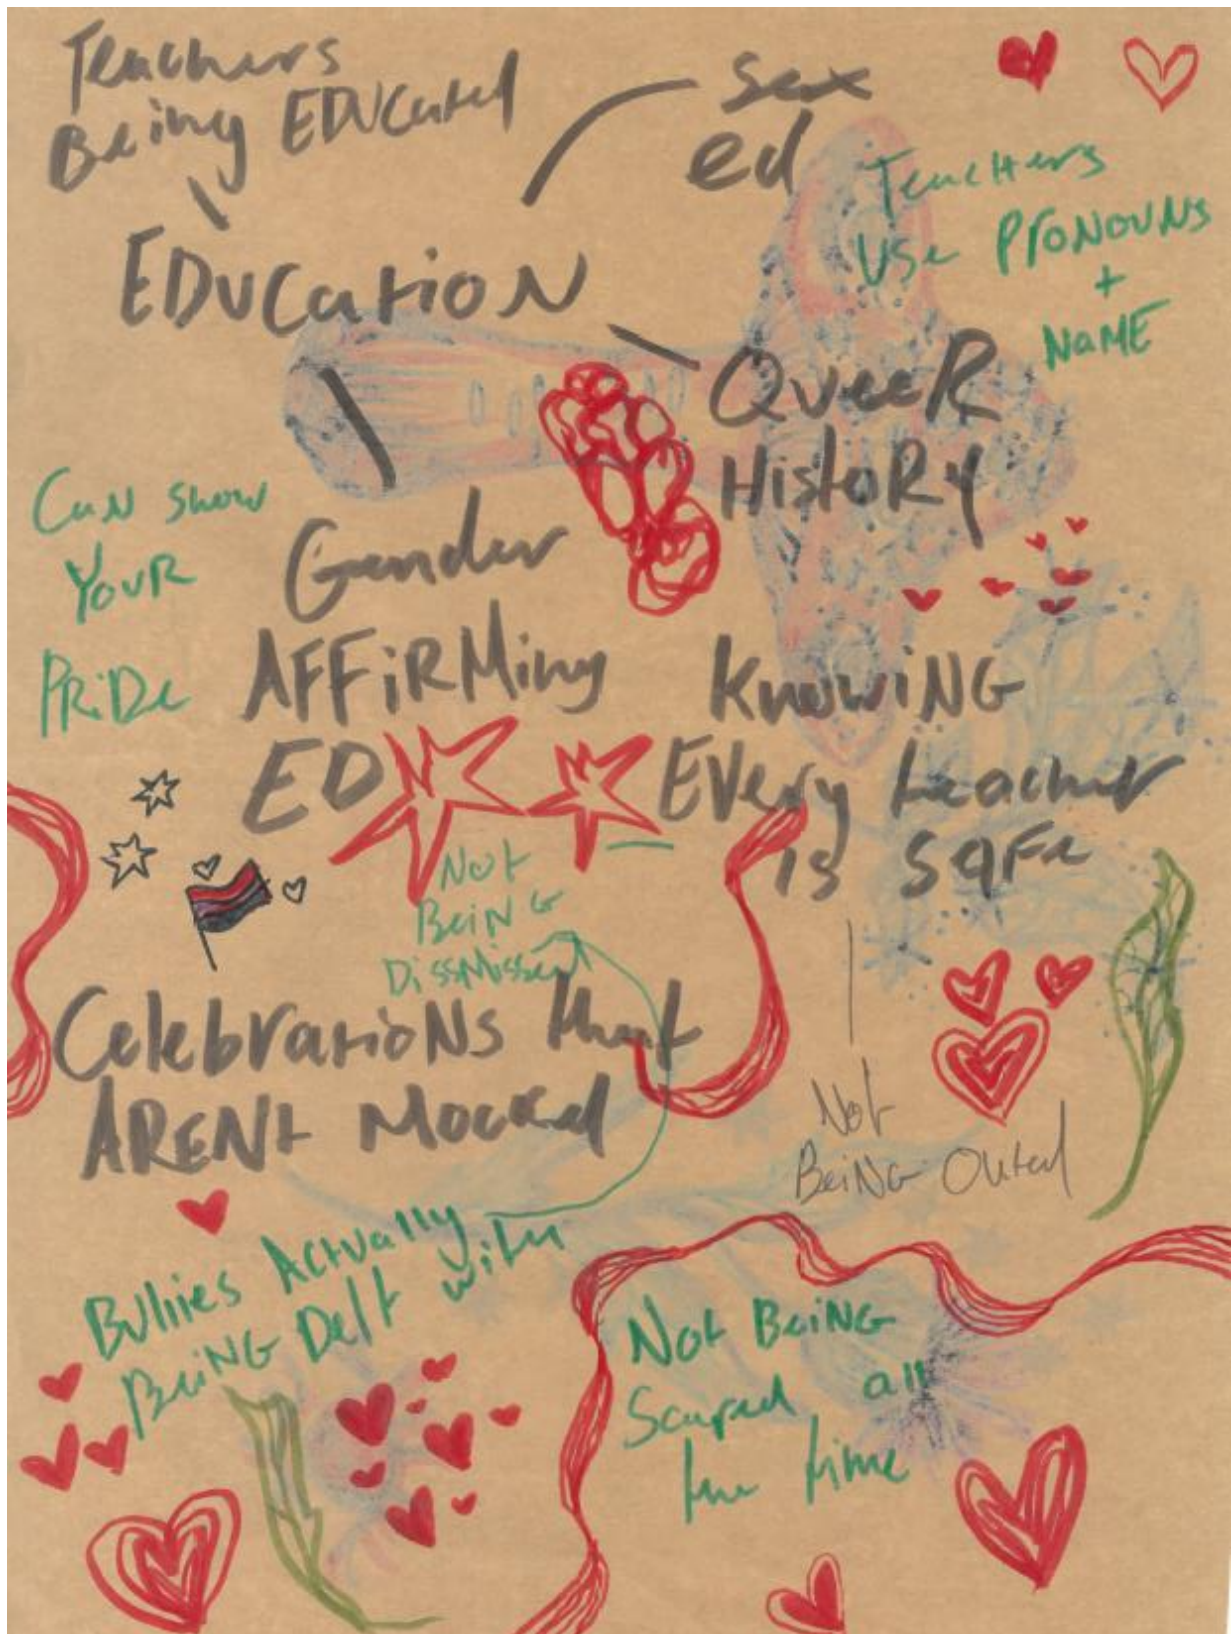 Teachers
Being EDUCated
Sex
ed
EDUCatioN
TeacHers
Use PRONOUNS
+
NaME
QueeR
HistoRy
CaN Show
YouR
PRiDe
Gender
AFFiRMing
ED
KnowiNG
EVery teacher
is safe
Not
BeiNG
DissMissed
CelebratioNs that
ARENt Mocked
Not
BeiNG Outed
Bullies Actually
BeiNG Delt with
Not BeiNG
Scared all
the time